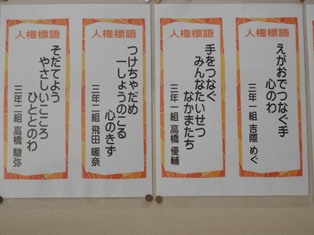 人権標語
えがおでつなぐ手
心のわ
三年一組 吉際 めぐ
人権標語
手をつなぐ
みんなたいせつ
なかまたち
三年一組 高橋 優輔
人権標語
つけちゃだめ
一しょうのこる
心のきず
三年二組 飛田 暖奈
人権標語
そだてよう
やさしいこころ
ひととのわ
三年二組 高橋 駿弥